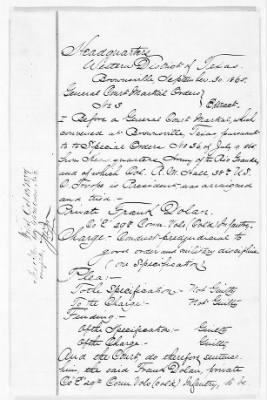 Headquarters
Western District of Texas.
Brownsville September 30. 1865.
General Court Martial Orders }
No 3 } Extract.
I – Before a General Court Martial, which
convened at Brownsville, Texas, pursuant
to Special Orders No 36 of July
from Head quarters Army of the Rio Grande,
and of which Col. A. M. Hall 38th U.S.
C. Troops is President was arraigned
and tried –
Private Frank Dolan.
Co "E" 29th Conn. Vols, (Col'd) Infantry.
Charge – Conduct prejudicial to
good order and military discipline
(one Specification)
Plea: –
To the Specification – Not Guilty
To the Charge – Not Guilty
Finding: –
Of the Specification: – Guilty
Of the Charge – Guilty
And the Court, do therefore sentence
him, the said Frank Dolan, private
Co "E" 29th Conn Vols (Col'd) Infantry, to be